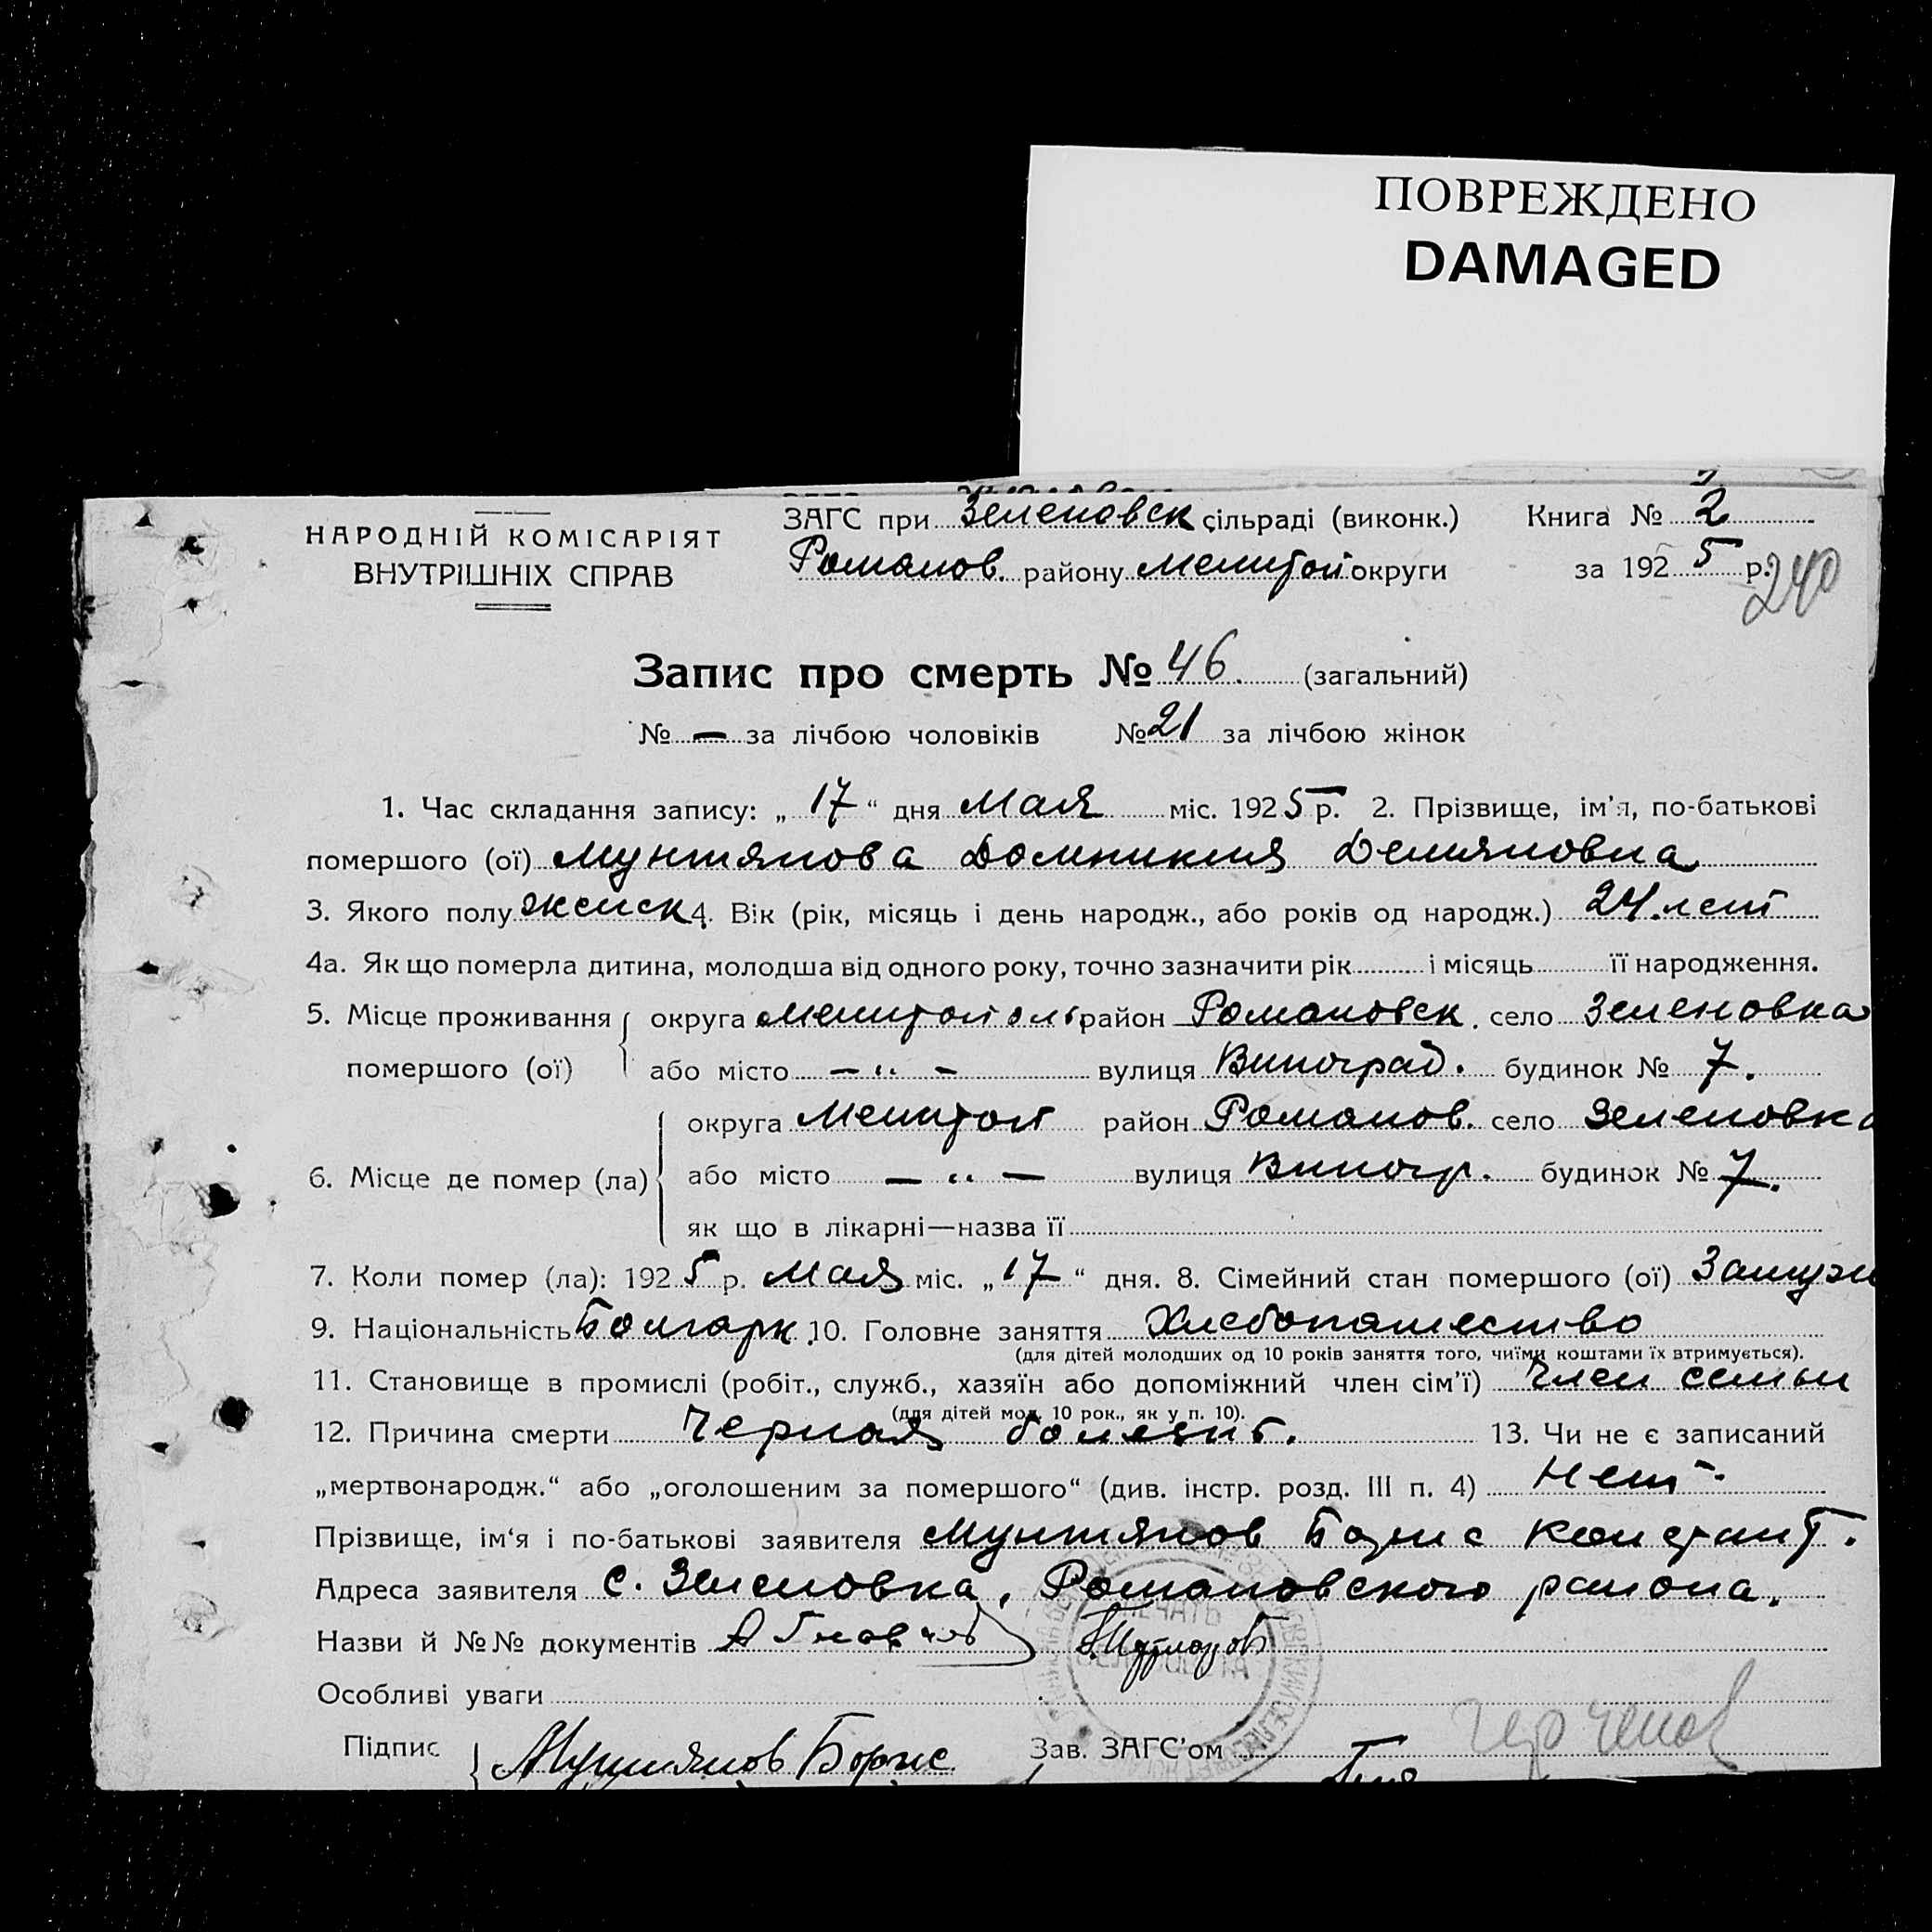 ПОВРЕЖДЕНО
DAMAGED
НАРОДНІЙ КОМІСАРІЯТ
ВНУТРІШНІХ СПРАВ
ЗАГС при Зеленовск сільраді (виконк.) Книга № 2
Романов. району Мелитоп округи за 1925 р.
240
Запис про смерть № 46. (загальний)
№ — за лічбою чоловіків № 21 за лічбою жінок
1. Час складання запису: „17“ дня Мая міс. 1925 р. 2. Прізвище, ім'я, по-батькові
помершого (ої) Мунтянова Домникия Демяновна
3. Якого полу женск 4. Вік (рік, місяць і день народж., або років од народж.) 24. лет
4а. Як що померла дитина, молодша від одного року, точно зазначити рік і місяць її народження.
5. Місце проживання округа Мелитополь район Романовск. село Зеленовка
помершого (ої) або місто — „ — вулиця Виноград. будинок № 7.
округа Мелитоп район Романов. село Зеленовка
6. Місце де помер (ла) або місто — „ — вулиця Виногр. будинок № 7.
як що в лікарні—назва її
7. Коли помер (ла): 1925 р. Мая міс. „17“ дня. 8. Сімейний стан помершого (ої) Замужн
9. Національність Болгарк. 10. Головне заняття Хлебопашество
(для дітей молодших од 10 років заняття того, чиїми коштами їх втримується).
11. Становище в промислі (робіт., служб., хазяїн або допоміжний член сім'ї) Член семьи
(для дітей мол. 10 рок., як у п. 10).
12. Причина смерти Черная болезнь. 13. Чи не є записаний
„мертвонародж.“ або „оголошеним за помершого“ (див. інстр. розд. III п. 4) Нет.
Прізвище, ім‘я і по-батькові заявителя Мунтянов Борис Констант.
Адреса заявителя с. Зеленовка, Романовского района.
Назви й №№ документів
ПЕЧАТЬ
Особливі уваги
Підпис Мунтянов Борис Зав. ЗАГС'ом